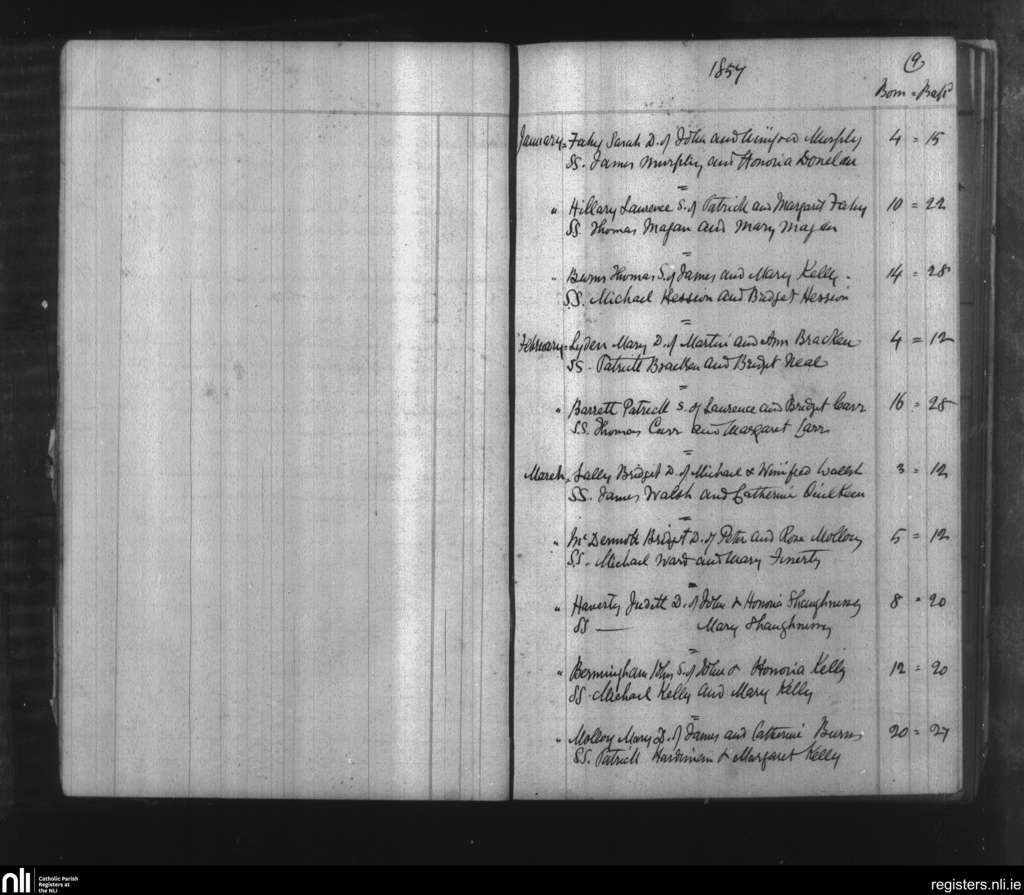 1857
(9
Born = Bapd
January = Fahy Sarah D. of John and Winifred Murphy 4 = 15
SS. James Murphy and Honoria Donelan
=
" Hillary Laurence S. of Patrick and Margaret Fahy 10 = 22
SS. Thomas Magan and Mary Magan
=
" Burns Thomas S. of James and Mary Kelly. 14 = 28
S.S. Michael Hession and Bridget Hession
=
February = Lyden Mary D. of Martin and Ann Bracken 4 = 12
SS. Patrick Bracken and Bridget Neal
=
" Barrett Patrick S. of Laurence and Bridget Carr 16 = 28
S.S. Thomas Carr and Margaret Carr
=
March. Lally Bridget D. of Michael & Winifred Walsh 3 = 12
SS. James Walsh and Catherine
=
" McDermott Bridget D. of Peter and Rose Molloy 5 = 12
SS. Michael Ward and Mary Finerty
=
" Haverty Judith D. of John & Honoria Shaughnessy 8 = 20
SS — Mary Shaughnessy
=
" Bermingham John S. of John & Honoria Kelly 12 = 20
SS. Michael Kelly and Mary Kelly
=
" Molloy Mary D. of James and Catherine Burns 20 = 27
SS. Patrick Hardiman & Margaret Kelly
nli
Catholic Parish
Registers at
the NLI
registers.nli.ie